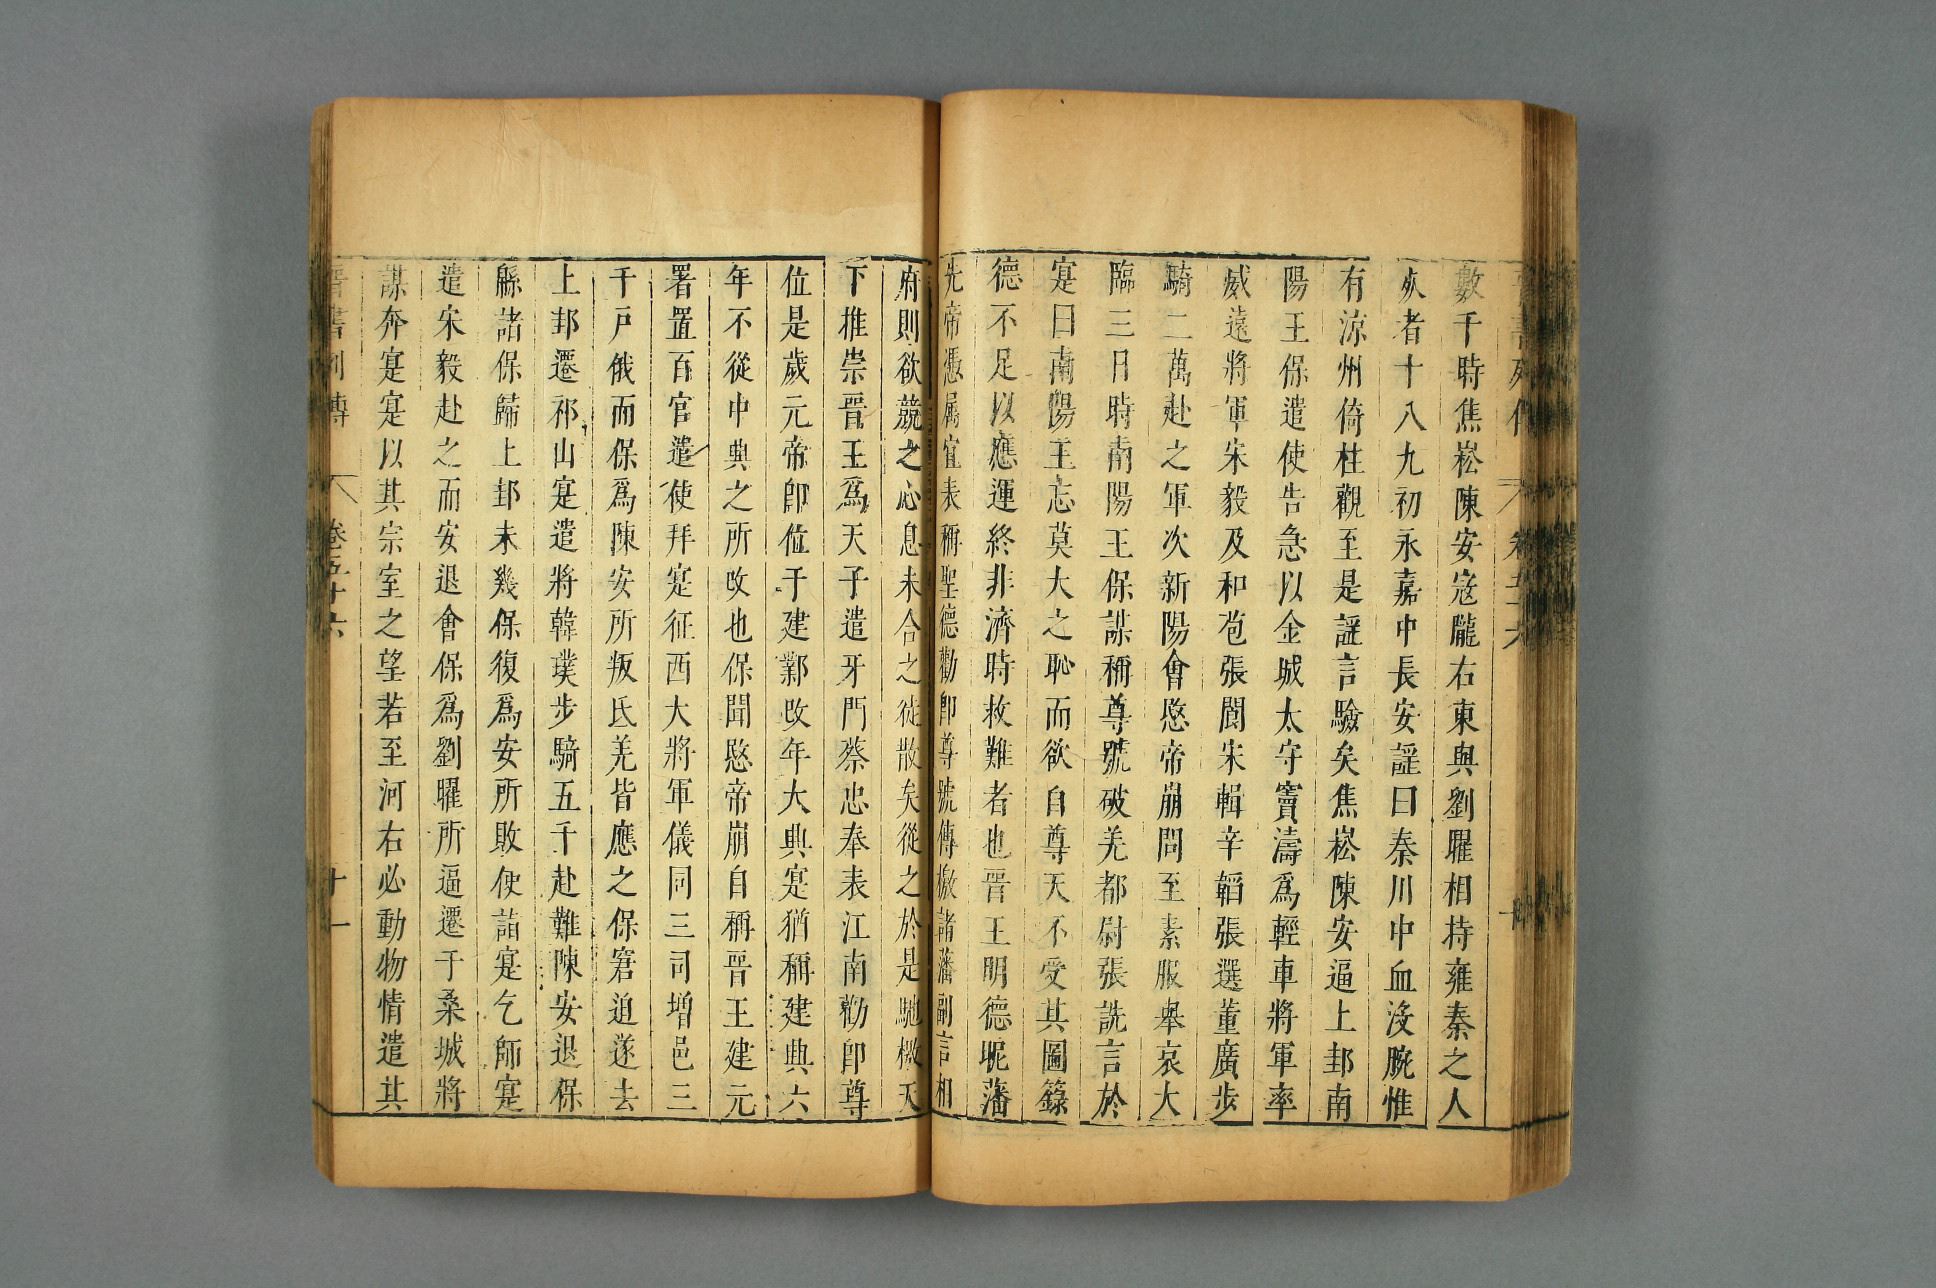 數千時焦崧陳安寇隴右東與劉曜相持雍秦之人
死者十八九初永嘉中長安謡曰秦川中血沒腕惟
有涼州倚柱觀至是謡言驗矣焦崧陳安逼上邽南
陽王保遣使告急以金城太守竇濤爲輕車將軍率
威遠將軍宋毅及和苞張閬宋輯辛韜張選董廣步
騎二萬赴之軍次新陽會愍帝崩問至素服舉哀大
臨三日時南陽王保謀稱尊號破羌都尉張詵言於
寔曰南陽王忘莫大之恥而欲自尊天不受其圖籙
德不足以應運終非濟時救難者也晉王明德昵藩
先帝憑屬宜表稱聖德勸卽尊號傳檄諸藩副言相
府則欲競之心息未合之徒散矣從之於是馳檄天
下推崇晉王爲天子遣牙門蔡忠奉表江南勸卽尊
位是歲元帝卽位于建鄴改年大興寔猶稱建興六
年不從中興之所改也保聞愍帝崩自稱晉王建元
署置百官遣使拜寔征西大將軍儀同三司增邑三
千戸俄而保爲陳安所叛氐羌皆應之保窘迫遂去
上邽遷祁山寔遣將韓璞步騎五千赴難陳安退保
緜諸保歸上邽未幾保復爲安所敗使詣寔乞師寔
遣宋毅赴之而安退會保爲劉曜所逼遷于桑城將
謀奔寔寔以其宗室之望若至河右必動物情遣其
晉書列傳 卷五十六 十一